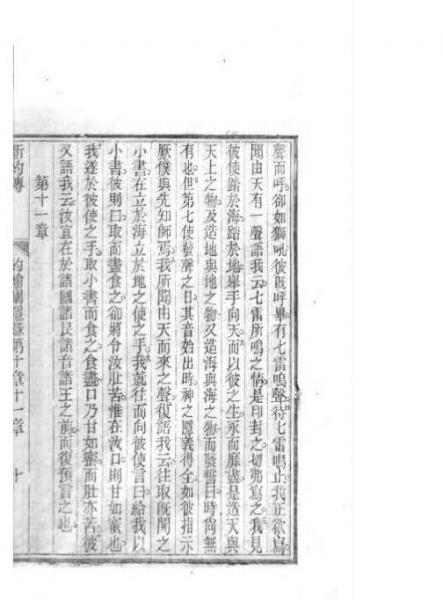 聲而呼。卻如獅吼彼旣呼畢有七雷鳴聲待七雷鳴止我正欲寫
聞由天有一聲語我云七雷所鳴之情是印封之切勿寫之我見
彼使踏於海踏於地舉手向天而以彼之生永而靡盡是造天與
天上之物及造地與地之物又造海與海之物而發誓曰時尚無
有也但第七使發聲之日其音始出時神之隱義得全如彼指示
厥僕與先知師焉我所聞由天而來之聲復語我云往取旣開之
小書在立於海立於地之使之手我就往而向彼使言曰給我以
小書彼則曰取而盡食之卻將令汝肚苦惟在汝口則甘如蜜也
我遂於彼使之手取小書而食之食盡口乃甘如蜜而肚亦苦彼
又語我云汝宜在於諸國諸民諸音諸王之前而復預言之也
第十一章
新約傳 第十章十一章 十